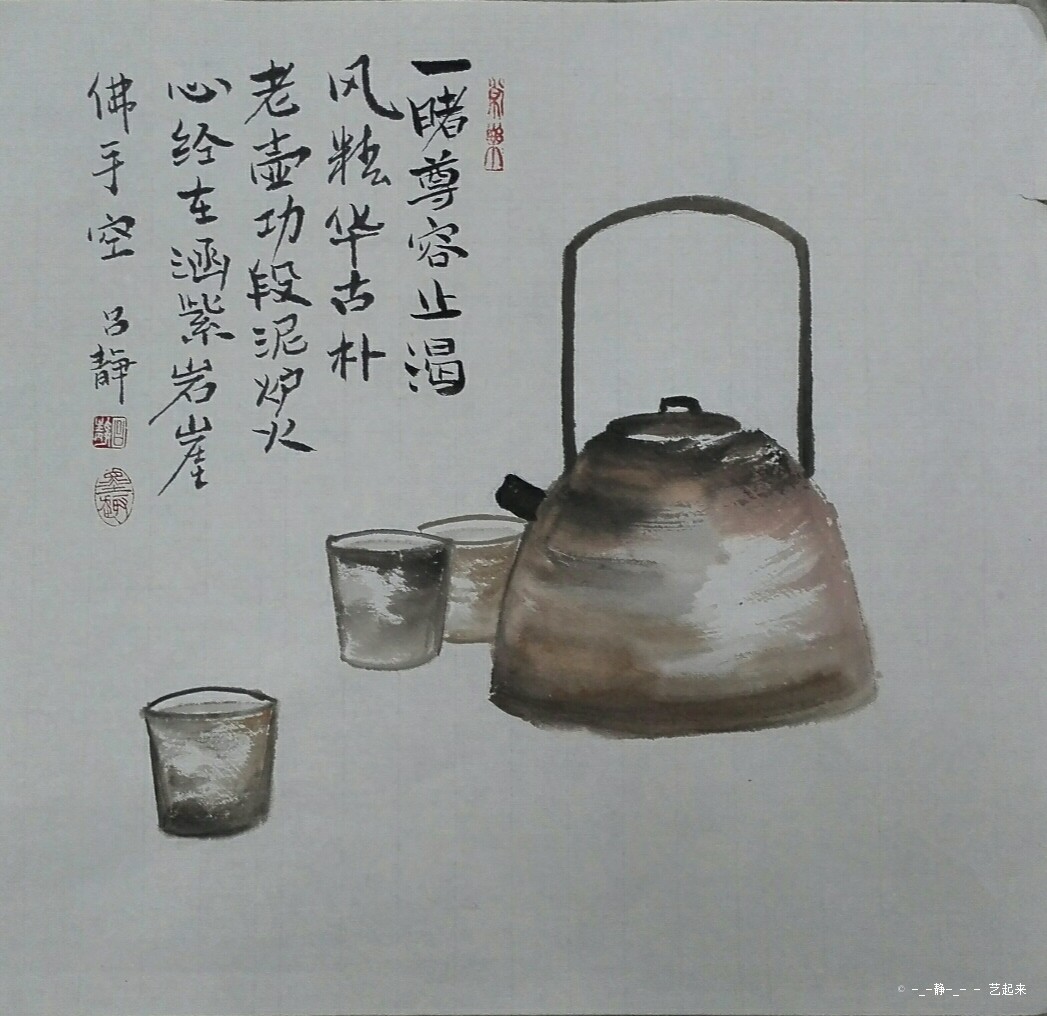 一睹尊容止渴
风精华古朴
老壶功段泥炉火
心经在涵紫岩崖
佛手空
吕静
吕静
© -_-静-_- - 艺起来